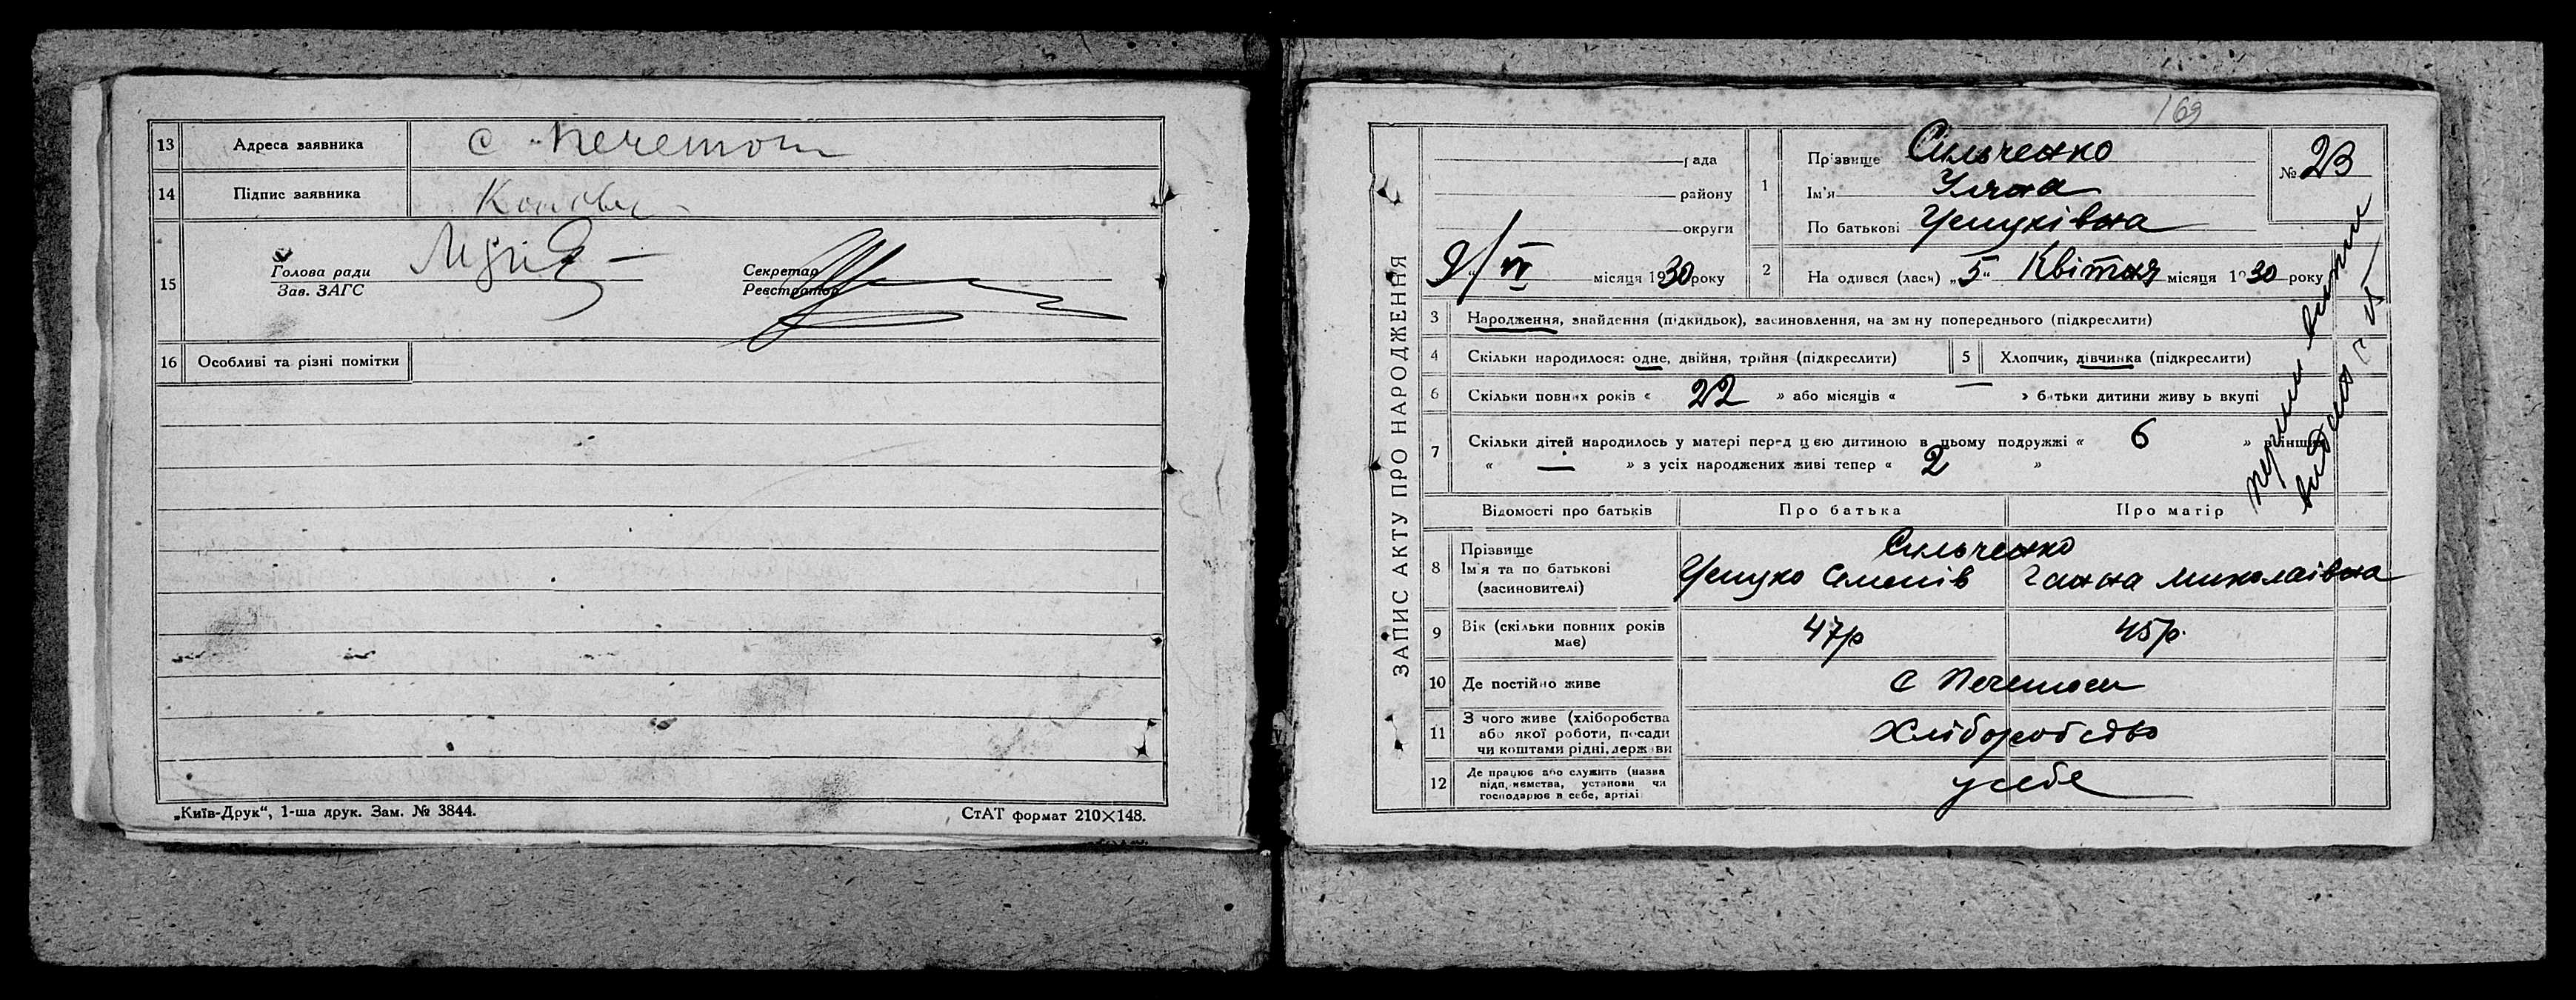 13 Адреса заявника с Печемоги
14 Підпис заявника
15 Голова ради
Зав. ЗАГС
Секретар
Реєстратор
16 Особливі та різні помітки
„Київ-Друк“, 1-ша друк. Зам. № 3844.
СтАТ формат 210×148.
169
ЗАПИС АКТУ ПРО НАРОДЖЕННЯ
рада
району
округи
9/VI місяця 1930 року
1 Прізвище Сильченко
Ім'я Уляна
По батькові
№ 23
2 Народився (лася) „5“ Квітня місяця 1930 року
3 Народження, знайдення (підкидьок), засиновлення, на зміну попереднього (підкреслити)
4 Скільки народилося: одне, двійня, трійня (підкреслити)
5 Хлопчик, дівчинка (підкреслити)
6 Скільки повних років « 22 » або місяців « — » батьки дитини живуть вкупі
7 Скільки дітей народилось у матері перед цією дитиною в цьому подружжі « 6 » в інших
« — » з усіх народжених живі тепер « 2 »
Відомості про батьків
Про батька
Про матір
8 Прізвище
Ім'я та по батькові
(засиновителі)
Сильченко
Семенів
Ганна Миколаївна
9 Вік (скільки повних років
має)
47р
45р.
10 Де постійно живе
11 З чого живе (хліборобства
або якої роботи, посади
чи коштами рідні, держави
Хліборобство
12 Де працює або служить (назва
підприємства, установи чи
господарює в себе, артілі
у себе